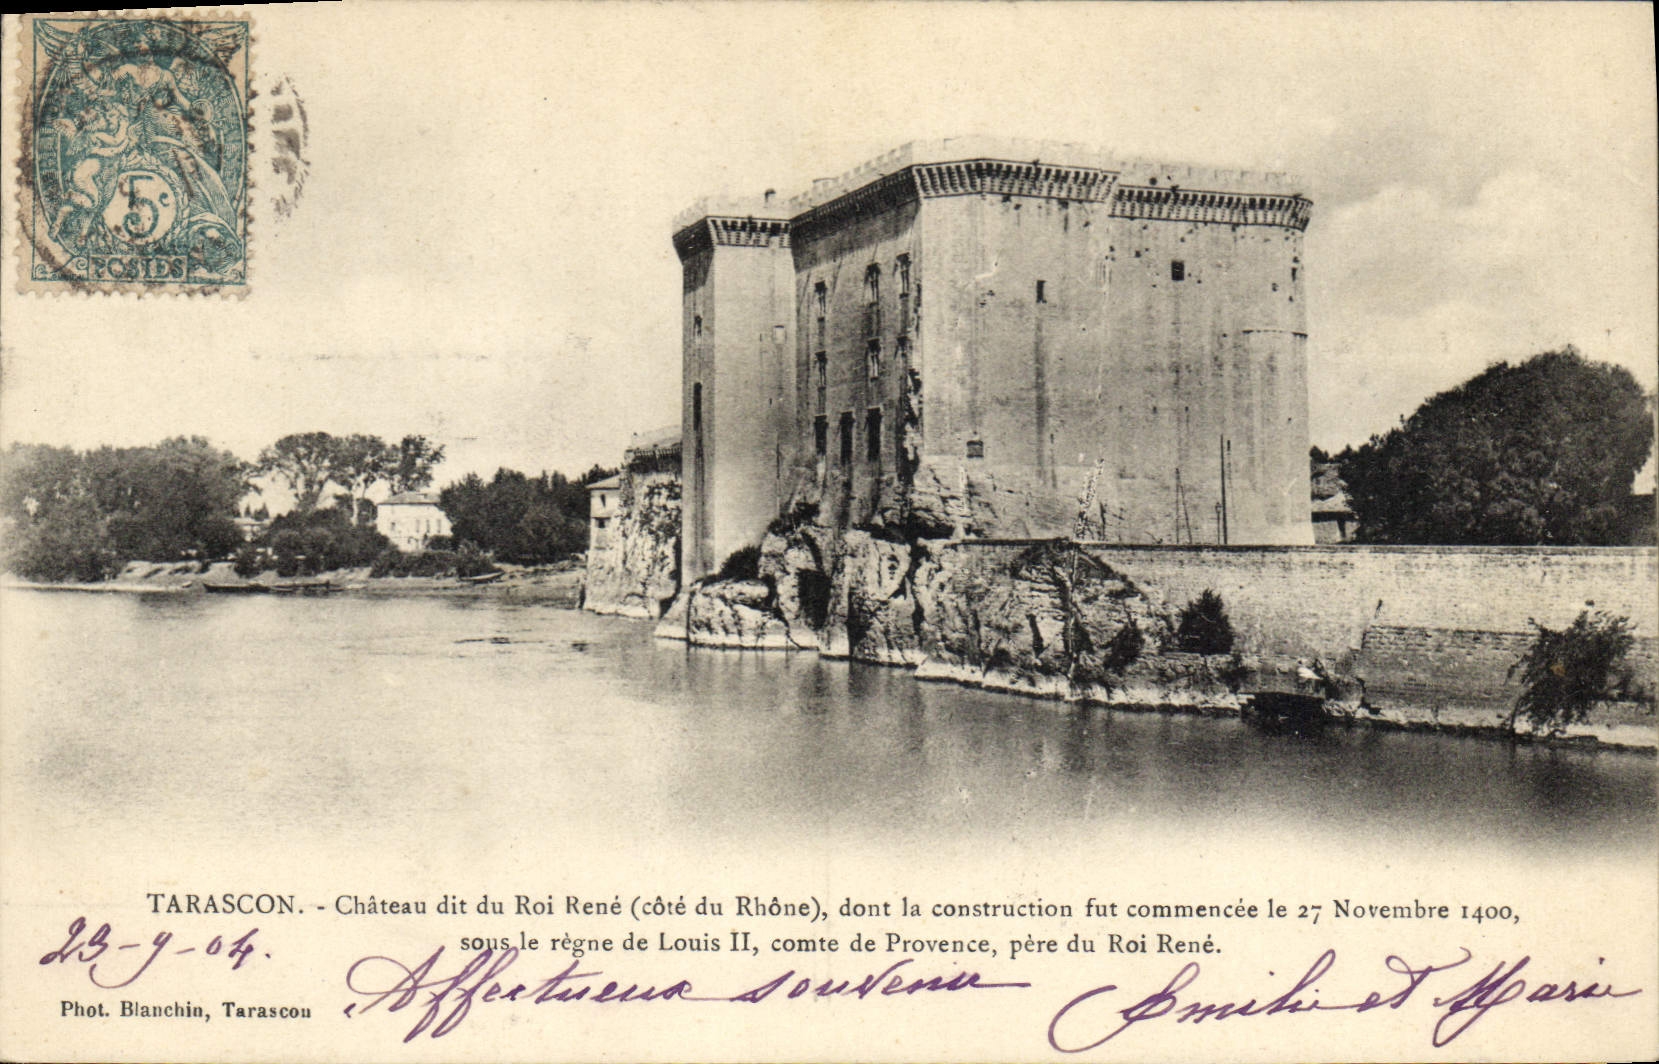 5c
POSTES
TARASCON. - Château dit du Roi René (côté du Rhône), dont la construction fut commencée le 27 Novembre 1400,
sous le règne de Louis II, comte de Provence, père du Roi René.
23-9-04.
Affectueux souvenir Emilie et Marie
Phot. Blanchin, Tarascon